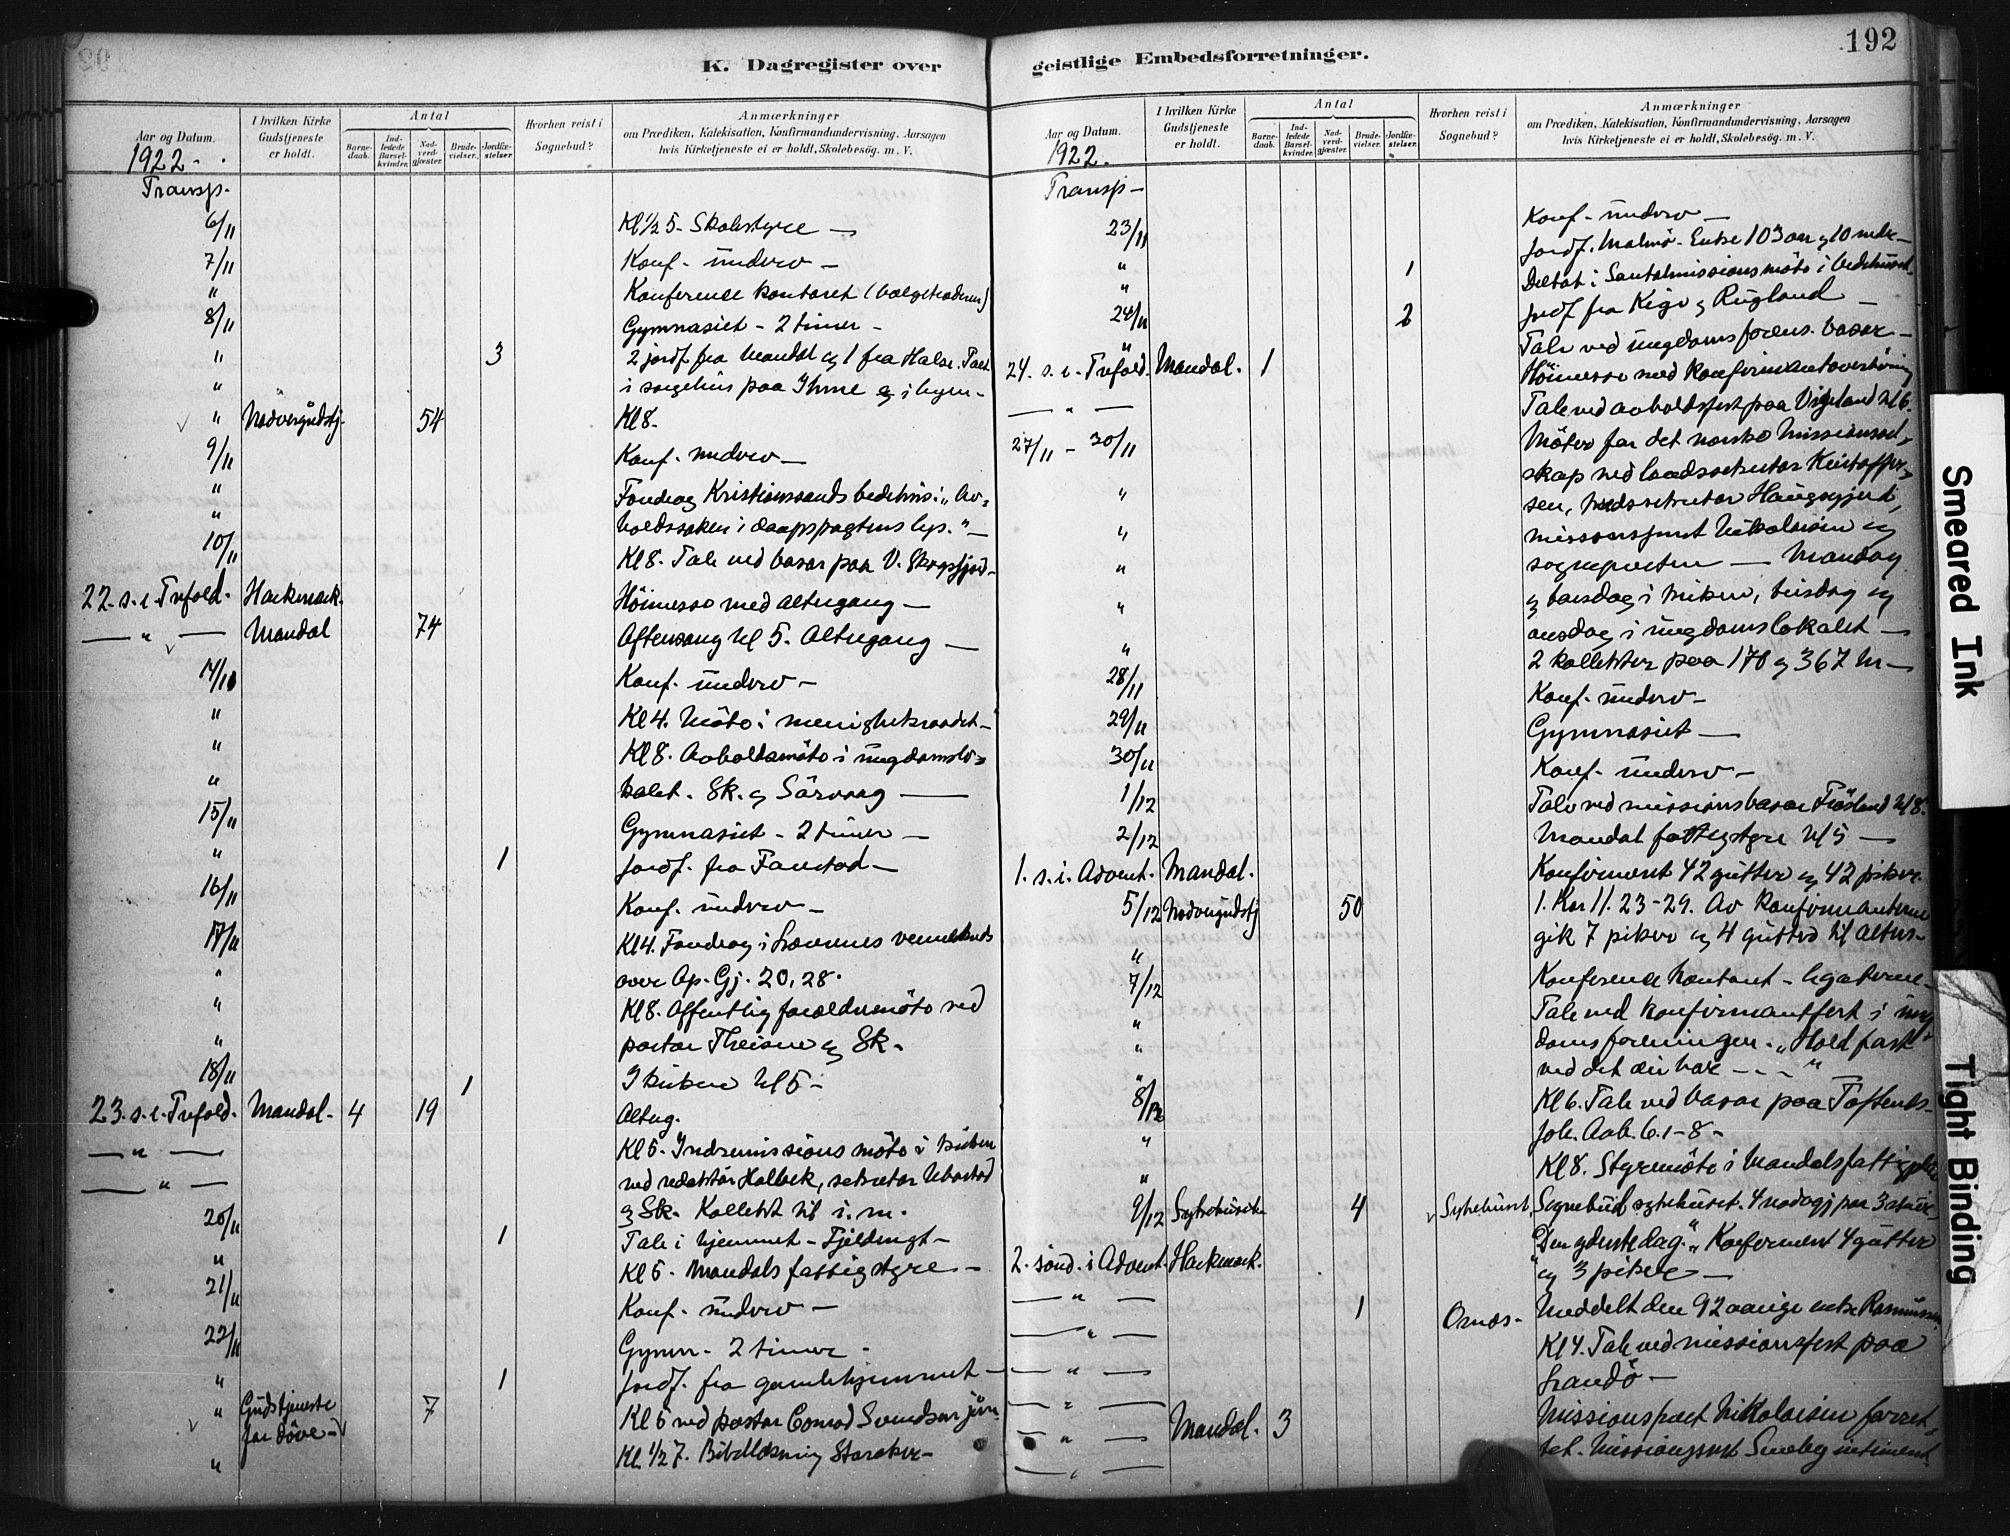 K. Dagregister over
Aar og Datum.
I hvilken Kirke Gudstjeneste er holdt.
Antal
Barne-daab.
Ind-ledede Barsel-kvinder.
Nad-verd-gjæster.
Brude-vielser.
Jordfæ-stelser.
Hvorhen reist i Sognebud?
Anmærkninger
om Prædiken, Katekisation, Konfirmandundervisning, Aarsagen
hvis Kirketjeneste ei er holdt, Skolebesøg. m. V.
1922.
Transp.
6/11 Kl ½ 5. Skolestyre —
7/11 Konf. underv —
" Konferende kontoret
8/11 Gymnasiet - 2 timer -
" 3 2 jordf. fra Mandal og 1 fra Halse. Talt
" i sørgehus paa Ihme og i hjem-
" Nadvergudstj. 54 Kl 8.
9/11 Konf. underv —
" Foredrag Kristianssands bedehus: „Av-
" holdssaken i daapspagtens lys." —
10/11 Kl 8. Tale ved basar paa V. Skogsfjord -
22. s. e. Trefold. Harkmark. Höimesse med altergang —
— " — Mandal 74 Aftensang kl 5. Altergang —
14/11 Konf. underv —
" Kl 4. Möte i menighetsraadet -
" Kl 8. Avholdsmöte i ungdomslo-
" kalet. Sk. og Sårvaag —
15/11 Gymnasiet - 2 timer —
" 1 Jordf. fra Farestad —
16/11 Konf. underv —
17/11 Kl 4. Foredrag i
" over Ap. Gj. 20, 28.
" Kl 8. Offentlig forældremöte ved
" pastor Theisne og Sk.
18/11 1 I kirken kl 5 -
23. s. e. Trefold. Mandal. 4 19 Alterg.
— " — Kl 5. Indremissions möte i kirken
— " — ved redaktör Holbek, sekretær
og Sk. Kollekt til i. m.
20/11 1 Tale i hjemmet - Fjeldsegt -
" Kl 5. Mandals fattigstyre —
21/11 Konf. underv —
22/11 Gymn - 2 timer -
" 1 Jordf. fra gamlehjemmet —
" Gudstjeneste for döve - 7 Kl 6 ved pastor Conrad Svendsen
" Kl ½ 7. Bibellæsning Storaker -
geistlige Embedsforretninger.
192
Aar og Datum.
I hvilken Kirke Gudstjeneste er holdt.
Antal
Barne-daab.
Ind-ledede Barsel-kvinder.
Nad-verd-gjæster.
Brude-vielser.
Jordfæ-stelser.
Hvorhen reist i Sognebud?
Anmærkninger
om Prædiken, Katekisation, Konfirmandundervisning, Aarsagen
hvis Kirketjeneste ei er holdt, Skolebesög. m. V.
1922.
Transp —
23/11 Konf. underv —
" 1 Jordf. Malmö. Enke 103 aar og 10 mdr —
" Deltat i Santalmissionsmöte i bedehuset.
24/11 2 Jordf fra Kige og Rugland —
" Tale ved ungdomsforens. basar —
24. s. e. Trefold. Mandal. 1 Höimesse med konfirmantoverhöring
— " — Tale ved avholdsfest paa Vigeland kl 6.
27/11 - 30/11 Möter for det norske missionssel-
skap ved landssekretær Kristoffer-
" sen, kredssekretær Haugsgjerd,
" missionsprest Nikolaisen og
" sognepresten — Mandag
" og torsdag i kirken, tirsdag og
onsdag i ungdomslokalet —
" 2 kollekter paa 170 og 367 kr —
28/11 Konf. underv —
29/11 Gymnasiet —
30/11 Konf. underv —
1/12 Tale ved missionsbasar Fröisland kl 8.
2/12 Mandal fattigstyre kl 5 —
1. s. i. Advent. Mandal. Konfirmert 42 gutter og 42 piker.
5/12 Nadvergudstj 50 1. Kor 11. 23-29. Av konfirmanterne
gik 7 piker og 4 gutter til alters -
" Konferende kontoret - legaterne -
7/12 Tale ved konfirmantfest i ung-
" domsforeningen. „Hold fast
" ved det du har - - - "
8/12 Kl 6. Tale ved basar paa Toftenes -
Joh. Aab. 6. 1-8 -
" Kl 8. Styremöte i Mandals fattigpleie
9/12 Sykehuset 4 Sykehuset Sognebud sykehuset. 4 nadvgj paa 3 stuer -
2. sönd. i Advent. Harkmark. „Den yderste dag." Konfirmert 4 gutter
og 3 piker —
— " — 1 Omos - Meddelt den 92 aarige enke Rasmussen
— " — Kl 4. Tale ved missionsfest paa
— " — Landö —
— " — Mandal. 3 Missionsprest Nikolaisen forret-
— " — tet. Missionsprest Smeby
Smeared Ink
Tight Binding